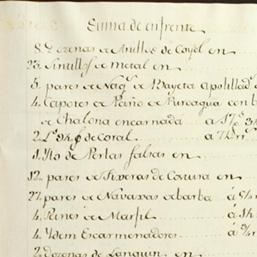 Suma de enfrente
8 Dozenas de Anillos de Coyol en
23 Sinullos de metal en
5 pares de Nag.s de Bayeta Apolillad.s
4 Capotes de Paño de con
de Chalona encarnada a 17 p.s
2 L.s de Coral a
1 Yto de Perlas falsas en
12 pares de Tixeras de Costura en
27 pares de Navaxas de barba a
4 Penes de Marfil a
4 Ydem Escarmenadores a
2 Dozenas de en